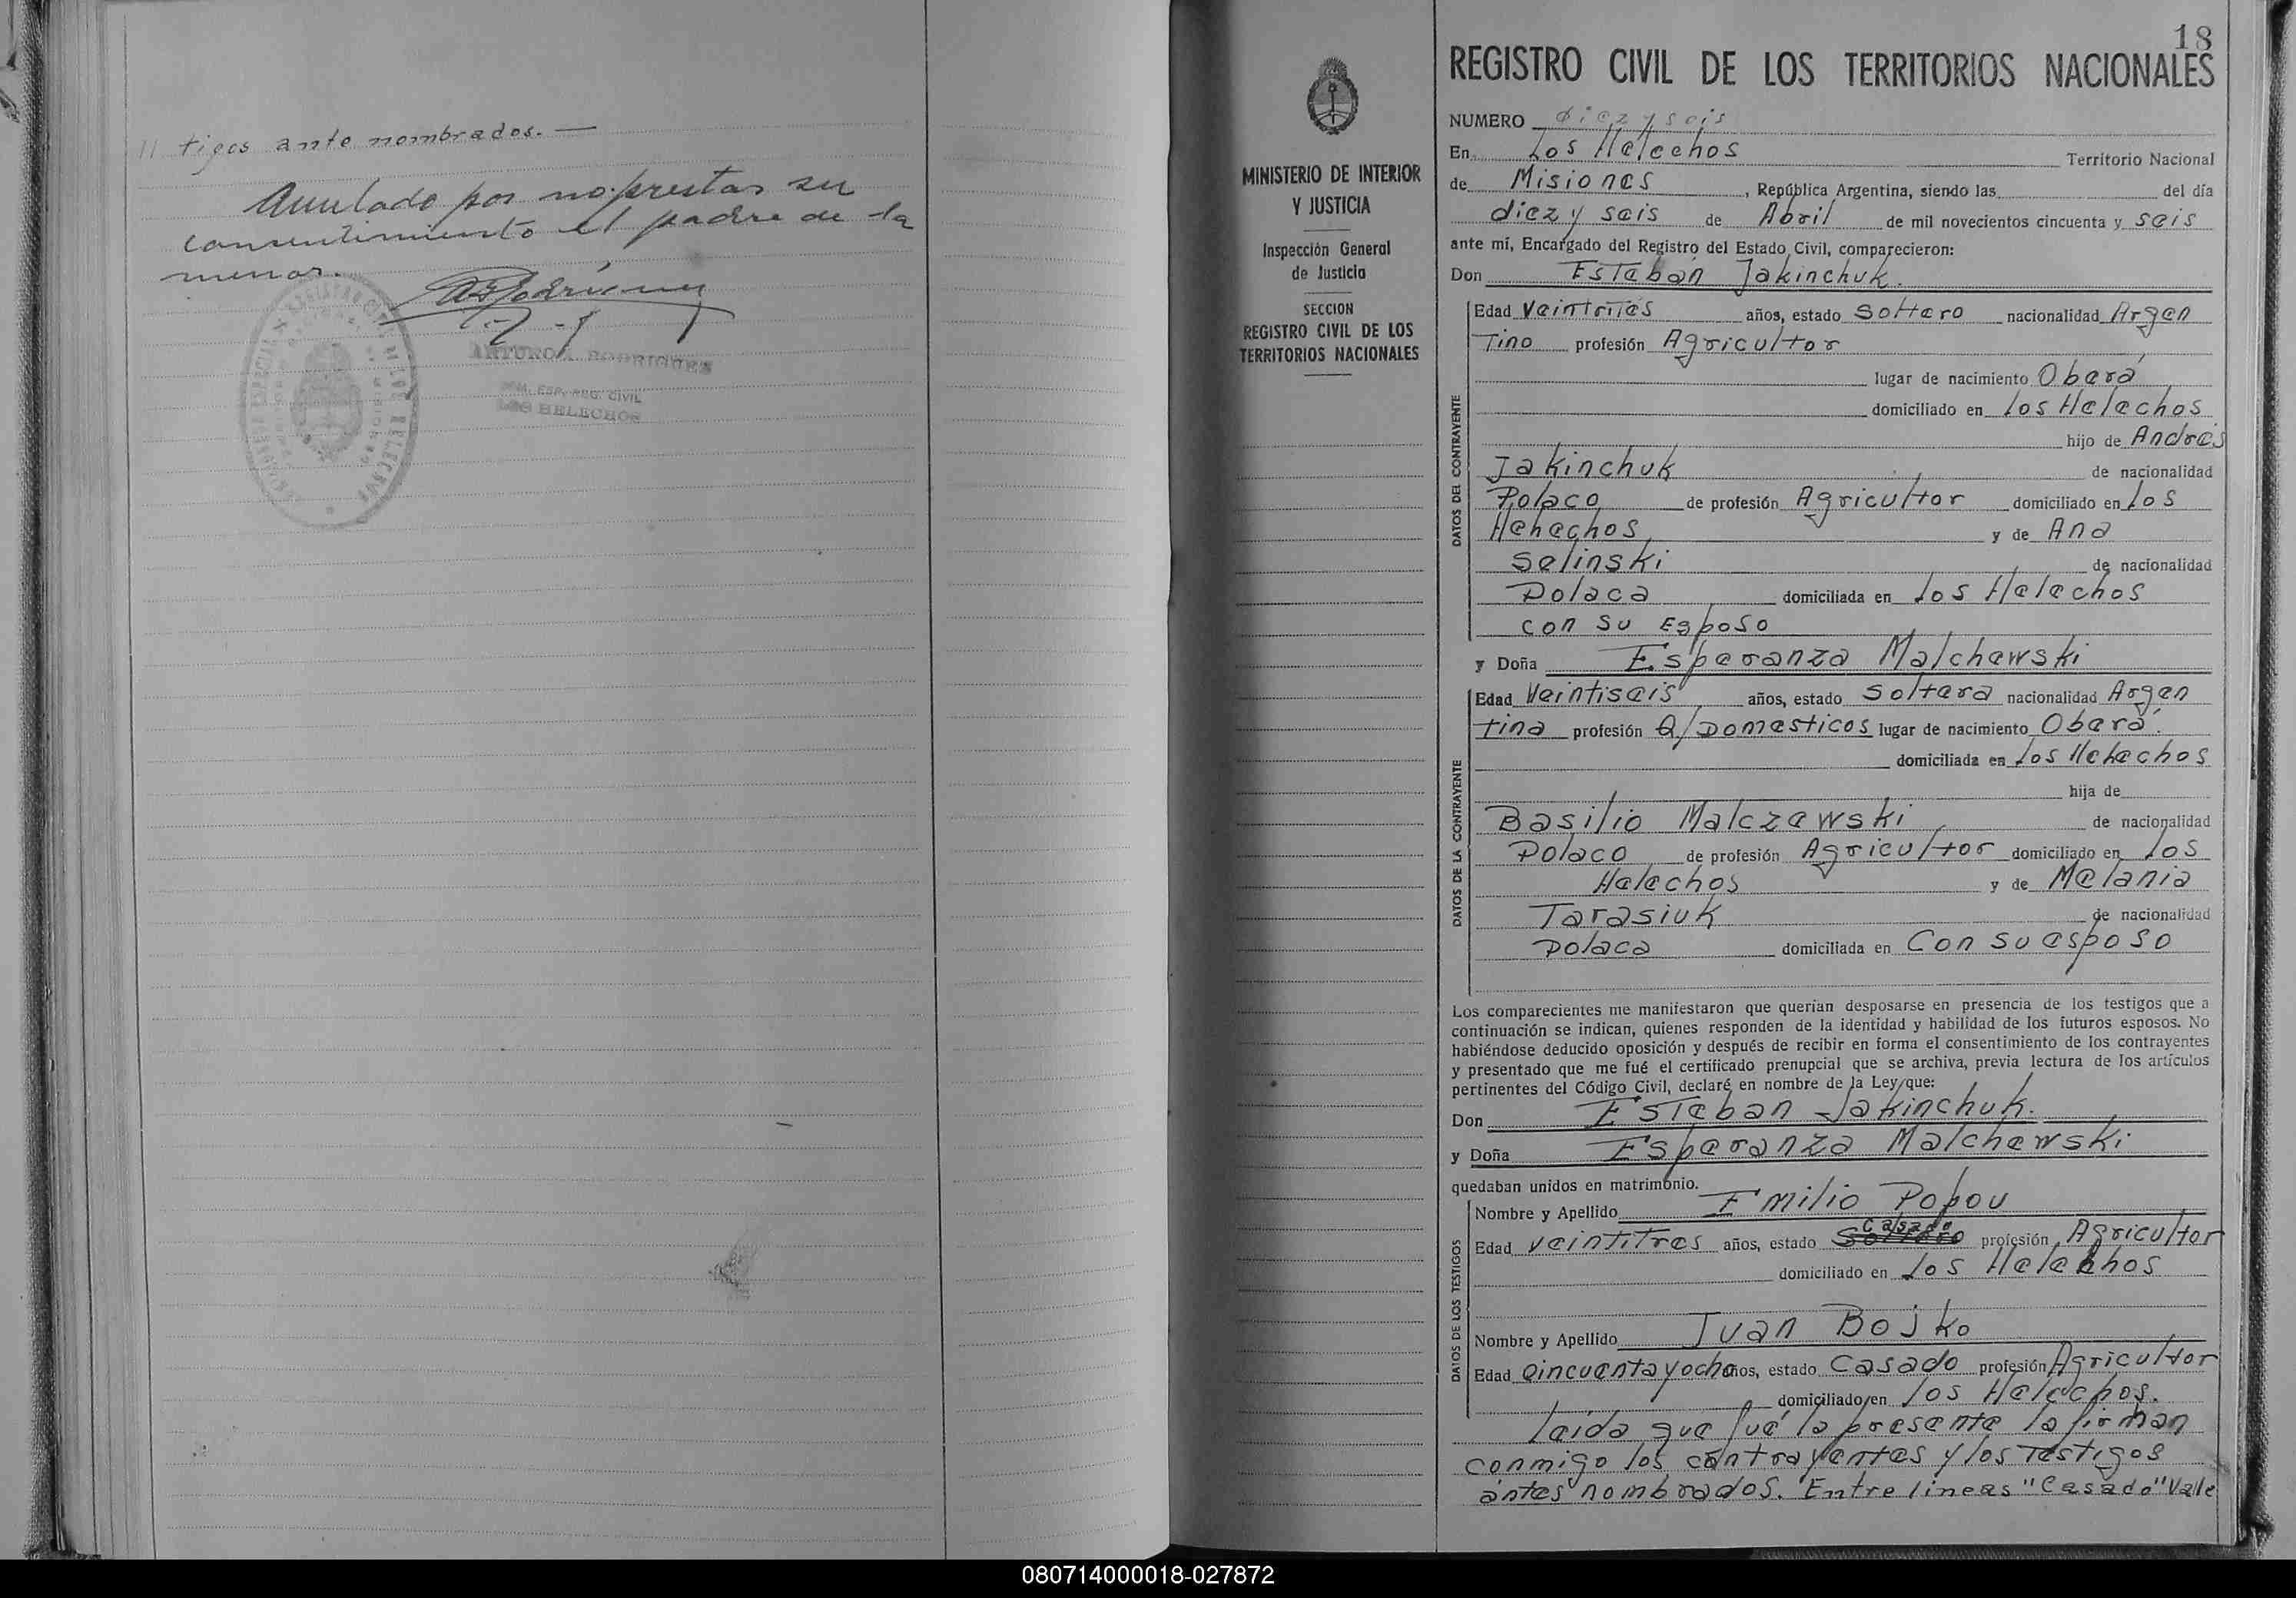 // tigos ante nombrados. —
Anulado por no prestar su
consentimiento el padre de la
menor.
ARTURO A. RODRIGUEZ
ESP. REG. CIVIL
LOS HELECHOS
18
REGISTRO CIVIL DE LOS TERRITORIOS NACIONALES
MINISTERIO DE INTERIOR
Y JUSTICIA
Inspección General
de Justicia
SECCION
REGISTRO CIVIL DE LOS
TERRITORIOS NACIONALES
NUMERO diez y seis
En Los Helechos Territorio Nacional
de Misiones, República Argentina, siendo las del día
diez y seis de Abril de mil novecientos cincuenta y seis
ante mí, Encargado del Registro del Estado Civil, comparecieron:
Don Esteban Jakinchuk.
DATOS DEL CONTRAYENTE
Edad Veintrites años, estado Soltero nacionalidad Argen
Tino profesión Agricultor
lugar de nacimiento Oberá
domiciliado en los Helechos
hijo de Andrés
Jakinchuk de nacionalidad
Polaco de profesión Agricultor domiciliado en Los
Hehechos y de Ana
Selinski de nacionalidad
Polaca domiciliada en Los Helechos
con su Esposo
y Doña Esperanza Malchewski
DATOS DE LA CONTRAYENTE
Edad Veintiseis años, estado Soltera nacionalidad Argen
tina profesión Q/Domesticos lugar de nacimiento Oberá.
domiciliada en Los Hehechos
hija de
Basilio Malczewski de nacionalidad
Polaco de profesión Agricultor domiciliado en Los
Helechos y de Melania
Tarasiuk de nacionalidad
Polaca domiciliada en Con su esposo
Los comparecientes me manifestaron que querían desposarse en presencia de los testigos que a
continuación se indican, quienes responden de la identidad y habilidad de los futuros esposos. No
habiéndose deducido oposición y después de recibir en forma el consentimiento de los contrayentes
y presentado que me fué el certificado prenupcial que se archiva, previa lectura de los artículos
pertinentes del Código Civil, declaré en nombre de la Ley que:
Don Esteban Jakinchuk.
y Doña Esperanza Malchewski
quedaban unidos en matrimonio.
DATOS DE LOS TESTIGOS
Nombre y Apellido Emilio Popou
Casado
Edad Veintitres años, estado Soltero profesión Agricultor
domiciliado en Los Helechos
Nombre y Apellido Juan Bojko
Edad Cincuenta y ocho años, estado Casado profesión Agricultor
domiciliado en los Helechos.
Leida que fué la presente la firman
conmigo los contrayentes y los Testigos
antes nombrados. Entre lineas "Casado" Vale
080714000018-027872